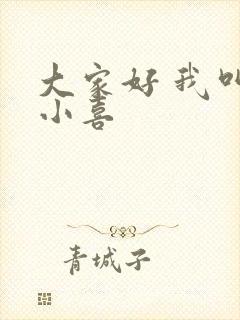 大家好我叫
小喜
青城子